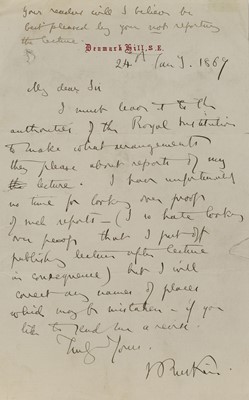 Your readers will I believe be
best pleased by your not reporting
the lecture.
Denmark Hill, S.E.
24th Jan'y. 1869
My dear Sir
I must leave it to the
authorities of the Royal Institution
to make what arrangements
they please about reports of my
the lecture. I have unfortunately
no time for looking over proofs
of such reports – (I so hate looking
over proofs that I put off
publishing lecture after lecture
in consequence) but I will
correct any names of places
which may be mistaken – if you
like to send me a revise.
Truly Yours.
J Ruskin.